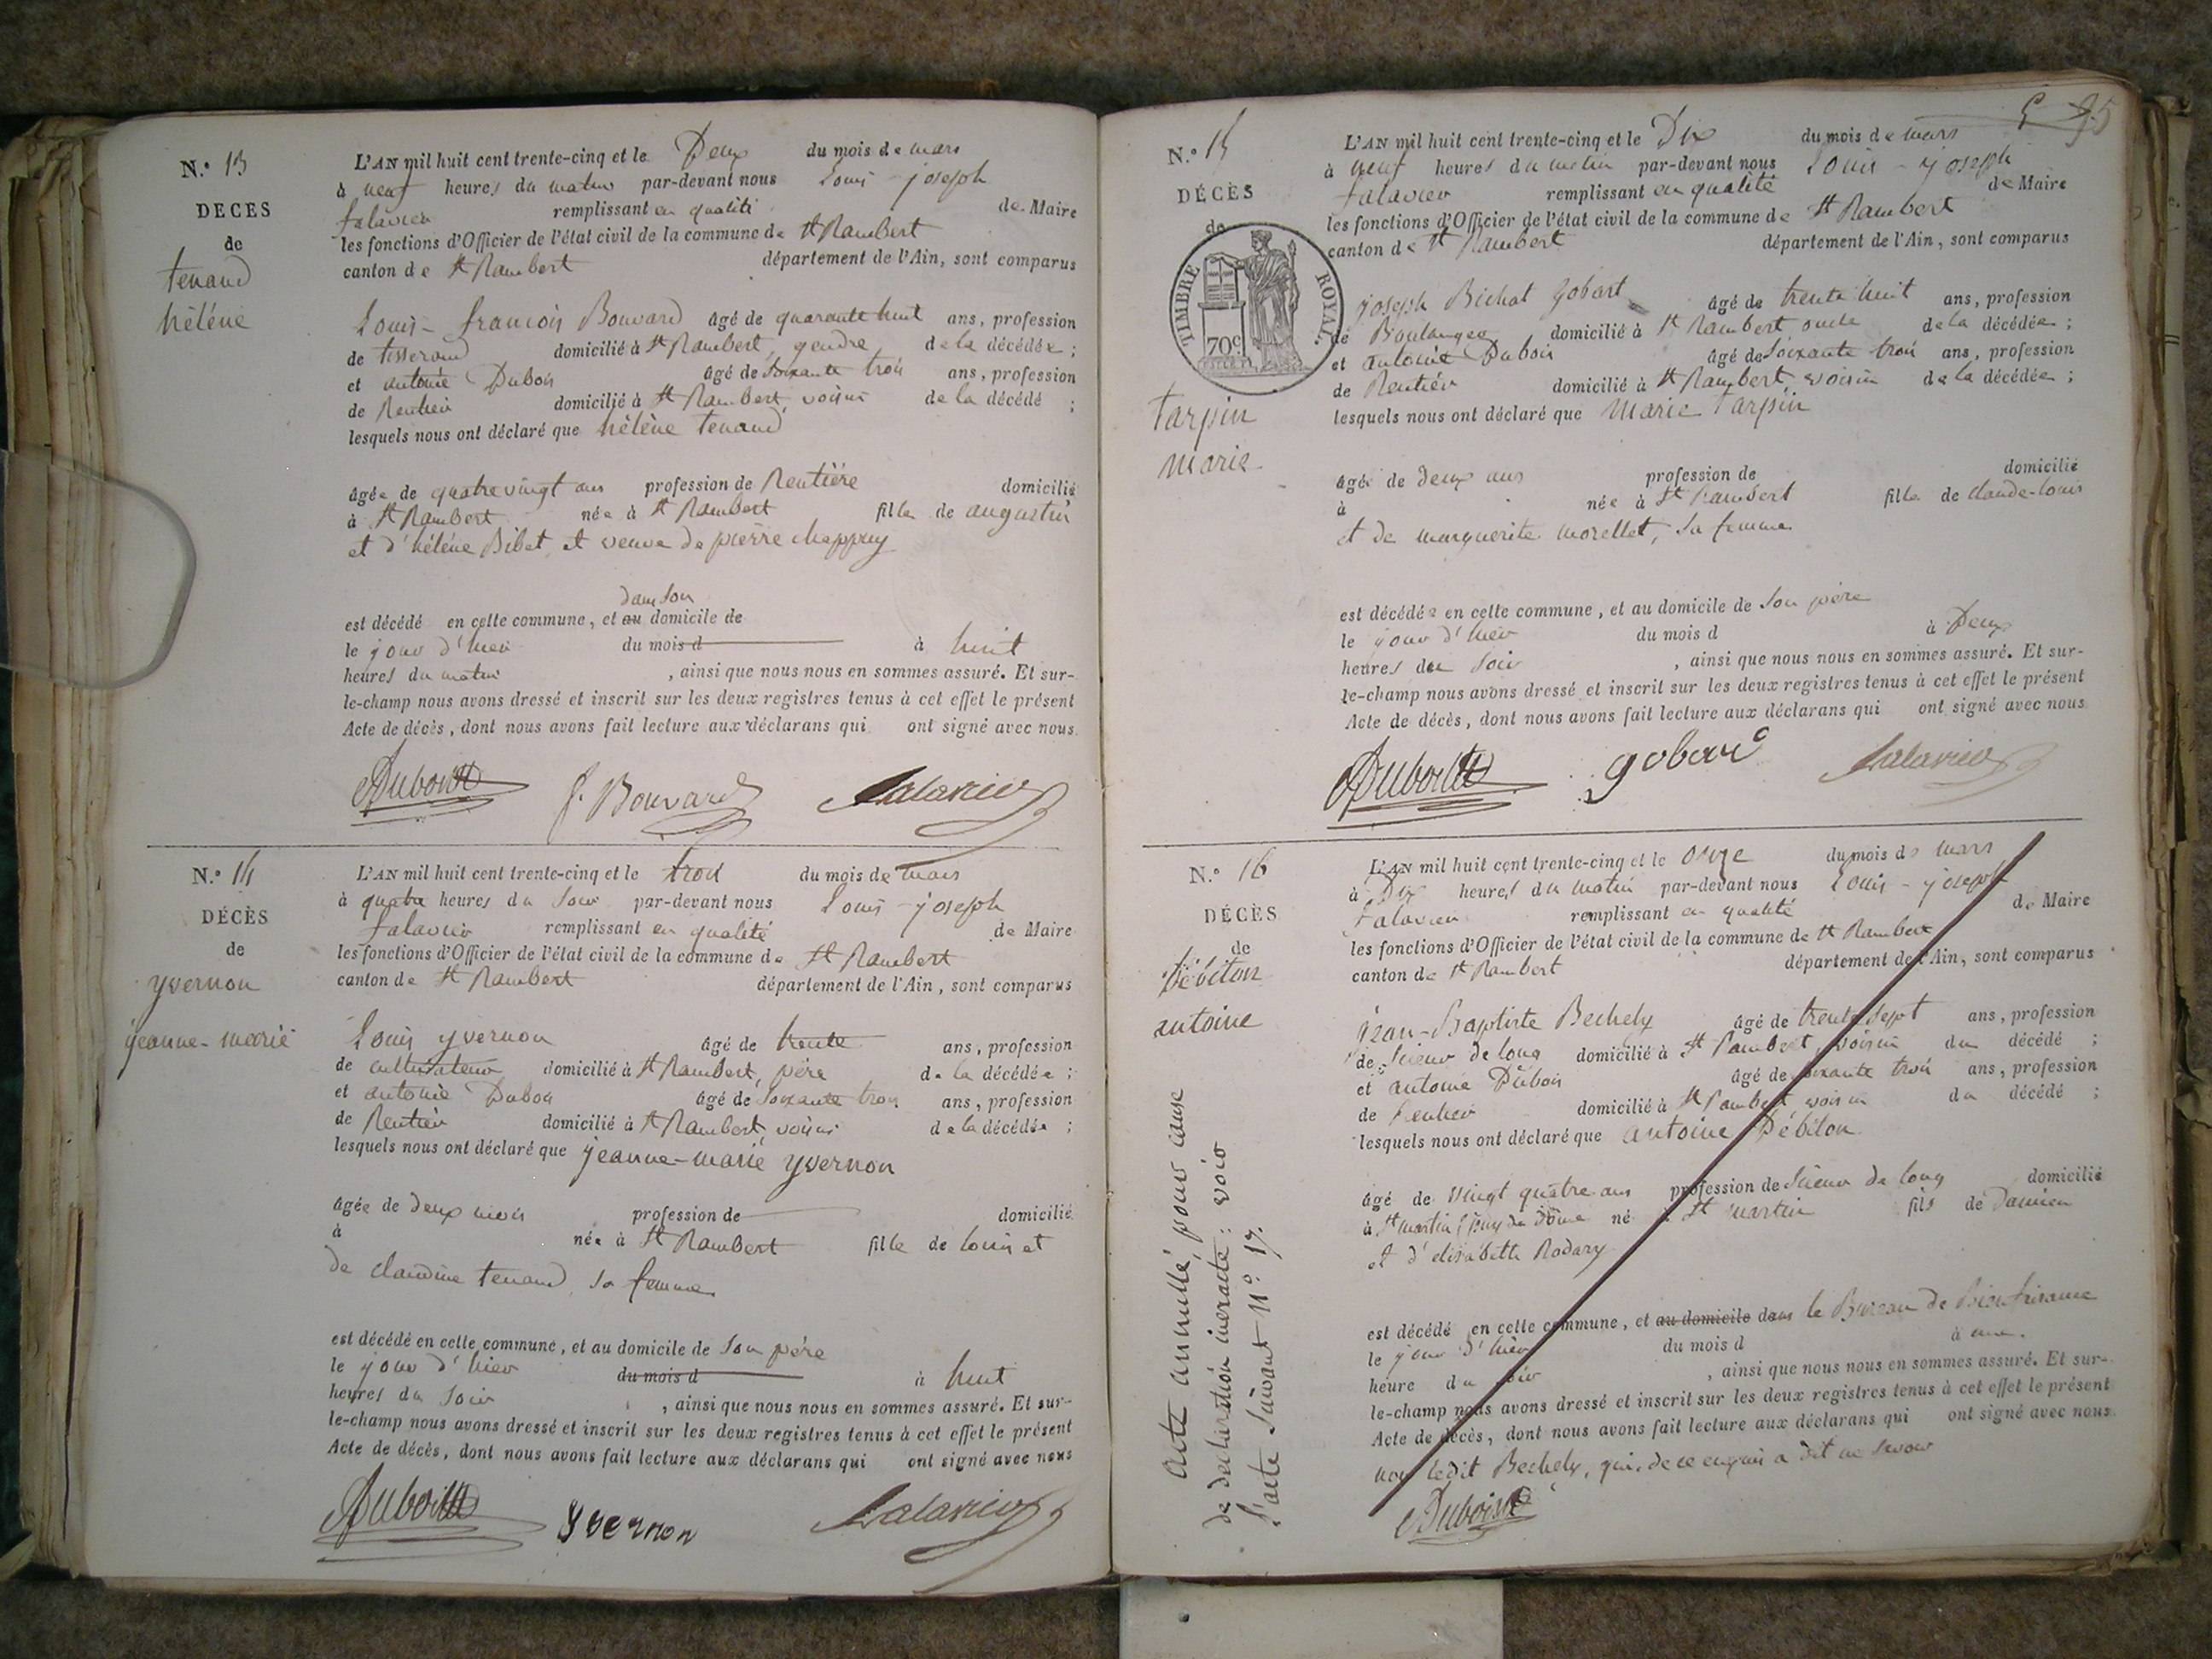 N.° 13
DECES
de
tenand
hélène
L'AN mil huit cent trente-cinq et le Deux du mois de mars
à neuf heures du matin par-devant nous Louis-joseph
falavier remplissant en qualité de Maire
les fonctions d'Officier de l'état civil de la commune de St Rambert
canton de St Rambert département de l'Ain, sont comparus
Louis-françois Bouvard âgé de quarante huit ans, profession
de tisserand domicilié à St Rambert, gendre de la décédée ;
et antoine Dubois âgé de soixante trois ans, profession
de Rentier domicilié à St Rambert, voisin de la décédé ;
lesquels nous ont déclaré que hélène tenand
âgée de quatre vingt ans profession de Rentière domicilié
à St Rambert née à St Rambert fille de augustin
et d'hélène Bibet, et veuve de pierre chappuy
dans son
est décédé en cette commune, et au domicile de
le jour d'hier du mois d à huit
heures du matin , ainsi que nous nous en sommes assuré. Et sur-
le-champ nous avons dressé et inscrit sur les deux registres tenus à cet effet le présent
Acte de décès, dont nous avons fait lecture aux déclarans qui ont signé avec nous.
Dubois f. Bouvard falavier
N.° 14
DÉCÈS
de
yvernon
jeanne-marie
L'AN mil huit cent trente-cinq et le trois du mois de mars
à quatre heures du soir par-devant nous Louis-joseph
falavier remplissant en qualité de Maire
les fonctions d'Officier de l'état civil de la commune de St Rambert
canton de St Rambert département de l'Ain, sont comparus
Louis yvernon âgé de trente ans, profession
de cultivateur domicilié à St Rambert, père de la décédée ;
et antoine Dubois âgé de soixante trois ans, profession
de Rentier domicilié à St Rambert, voisin de la décédée ;
lesquels nous ont déclaré que jeanne-marie yvernon
âgée de deux mois profession de domicilié
à née à St Rambert fille de louis et
de claudine tenand, sa femme
est décédé en cette commune, et au domicile de son père
le jour d'hier du mois d à huit
heures du soir , ainsi que nous nous en sommes assuré. Et sur-
le-champ nous avons dressé et inscrit sur les deux registres tenus à cet effet le présent
Acte de décès, dont nous avons fait lecture aux déclarans qui ont signé avec nous
Dubois yvernon falavier
N.° 15
DÉCÈS
de
TIMBRE ROYAL.
70c
tarpin
marie
L'AN mil huit cent trente-cinq et le Dix du mois de mars
à neuf heures du matin par-devant nous Louis-joseph
falavier remplissant en qualité de Maire
les fonctions d'Officier de l'état civil de la commune de St Rambert
canton de St Rambert département de l'Ain, sont comparus
joseph Bichat gobart âgé de trente huit ans, profession
de Boulanger domicilié à St Rambert oncle de la décédée ;
et antoine Dubois âgé de soixante trois ans, profession
de Rentier domicilié à St Rambert, voisin de la décédée ;
lesquels nous ont déclaré que marie tarpin
âgée de deux ans profession de domicilié
à née à St Rambert fille de claude-louis
et de marguerite morellet, sa femme
est décédée en cette commune, et au domicile de son père
le jour d'hier du mois d à Deux
heures du soir , ainsi que nous nous en sommes assuré. Et sur-
le-champ nous avons dressé et inscrit sur les deux registres tenus à cet effet le présent
Acte de décès, dont nous avons fait lecture aux déclarans qui ont signé avec nous.
Dubois gobart falavier
N.° 16
DÉCÈS
de
Débiton
antoine
acte annullé, pour cause
de déclaration inexacte : voir
l'acte suivant n.° 17.
L'AN mil huit cent trente-cinq et le onze du mois de mars
à Dix heures du matin par-devant nous Louis-joseph
falavier remplissant en qualité de Maire
les fonctions d'Officier de l'état civil de la commune de St Rambert
canton de St Rambert département de l'Ain, sont comparus
jean-Baptiste Bechely âgé de trente sept ans, profession
de scieur de long domicilié à St Rambert, voisin du décédé ;
et antoine Dubois âgé de soixante trois ans, profession
de Rentier domicilié à St Rambert voisin du décédé ;
lesquels nous ont déclaré que antoine Débiton
âgé de vingt quatre ans profession de scieur de long domicilié
à St martin (puy de Dôme né à St martin fils de Damien
et d'elisabeth Rodary
est décédé en cette commune, et au domicile dans le Bureau de Bienfaisance
le jour d'hier du mois d à une
heure du soir , ainsi que nous nous en sommes assuré. Et sur-
le-champ nous avons dressé et inscrit sur les deux registres tenus à cet effet le présent
Acte de décès, dont nous avons fait lecture aux déclarans qui ont signé avec nous
non ledit Bechely, qui, de ce enquis a dit ne savoir
Dubois